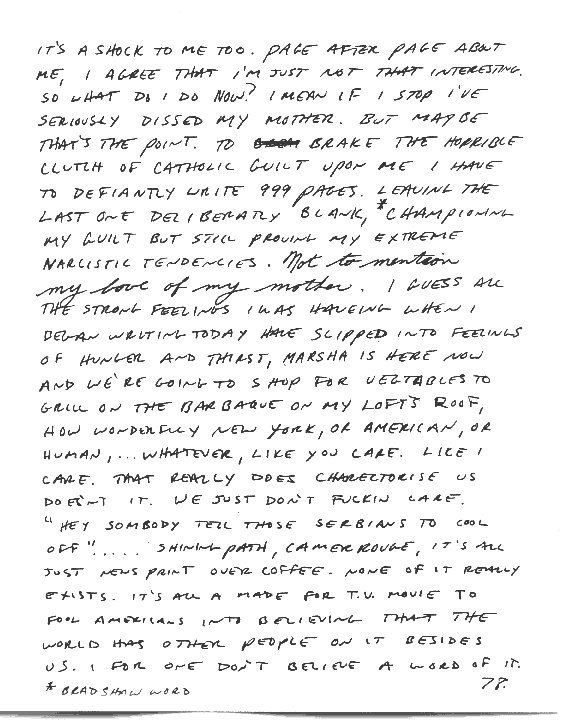 IT'S A SHOCK TO ME TOO. PAGE AFTER PAGE ABOUT
ME, I AGREE THAT I'M JUST NOT THAT INTERESTING.
SO WHAT DO I DO NOW? I MEAN IF I STOP I'VE
SERIOUSLY DISSED MY MOTHER. BUT MAYBE
THAT'S THE POINT. TO BRAKE THE HORRIBLE
CLUTCH OF CATHOLIC GUILT UPON ME I HAVE
TO DEFIANTLY WRITE 999 PAGES. LEAVING THE
LAST ONE DELIBERATLY BLANK, *CHAMPIONING
MY GUILT BUT STILL PROVING MY EXTREME
NARCISTIC TENDENCIES. Not to mention
my love of my mother. I GUESS ALL
THE STRONG FEELINGS I WAS HAVEING WHEN I
BEGAN WRITING TODAY HAVE SLIPPED INTO FEELINGS
OF HUNGER AND THIRST, MARSHA IS HERE NOW
AND WE'RE GOING TO SHOP FOR VEGTABLES TO
GRILL ON THE BARBAQUE ON MY LOFT'S ROOF,
HOW WONDERFULLY NEW YORK, OR AMERICAN, OR
HUMAN,... WHATEVER, LIKE YOU CARE. LIKE I
CARE. THAT REALLY DOES CHARECTORISE US
DOESN'T IT. WE JUST DON'T FUCKIN CARE.
"HEY SOMBODY TELL THOSE SERBIANS TO COOL
OFF"..... SHINING PATH, CAMER ROUGE, IT'S ALL
JUST NEWS PRINT OVER COFFEE. NONE OF IT REALLY
EXISTS. IT'S ALL A MADE FOR T.V. MOVIE TO
FOOL AMERICANS INTO BELIEVING THAT THE
WORLD HAS OTHER PEOPLE ON IT BESIDES
US. I FOR ONE DON'T BELIEVE A WORD OF IT.
* BRADSHAW WORD 78.